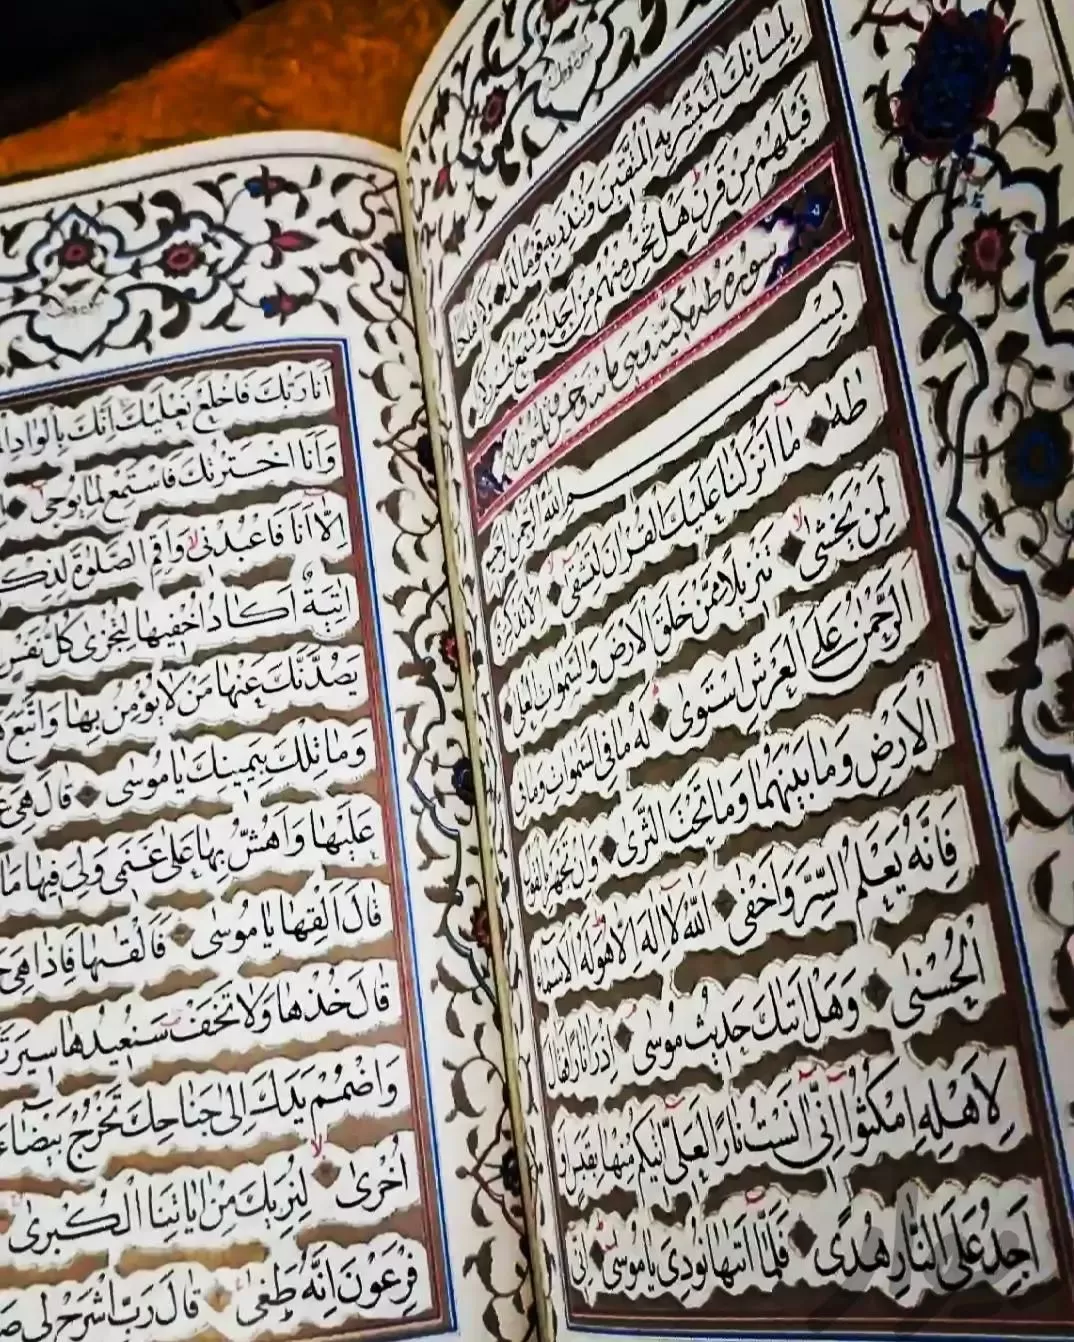 بِلِسَانِكَ لِتُبَشِّرَ بِهِ الْمُتَّقِينَ وَتُنْذِرَ بِهِ قَوْمًا لُدًّا وَكَمْ أَهْلَكْنَا
قَبْلَهُمْ مِنْ قَرْنٍ هَلْ تُحِسُّ مِنْهُمْ مِنْ أَحَدٍ أَوْ تَسْمَعُ لَهُمْ رِكْزًا
سورة طه مكية وهي مائة وخمس وثلاثون آية
بِسْمِ اللَّهِ الرَّحْمَنِ الرَّحِيمِ
طه مَا أَنْزَلْنَا عَلَيْكَ الْقُرْاٰنَ لِتَشْقٰى إِلَّا تَذْكِرَةً
لِمَنْ يَخْشٰى تَنْزِيلًا مِمَّنْ خَلَقَ الْاَرْضَ وَالسَّمٰوَاتِ الْعُلٰى
اَلرَّحْمٰنُ عَلَى الْعَرْشِ اسْتَوٰى لَهُ مَا فِى السَّمٰوَاتِ وَمَا فِى
الْاَرْضِ وَمَا بَيْنَهُمَا وَمَا تَحْتَ الثَّرٰى وَاِنْ تَجْهَرْ بِالْقَوْلِ
فَاِنَّهُ يَعْلَمُ السِّرَّ وَاَخْفٰى اَللّٰهُ لَا اِلٰهَ اِلَّا هُوَ لَهُ الْاَسْمَاءُ
الْحُسْنٰى وَهَلْ اَتٰيكَ حَدِيثُ مُوسٰى اِذْ رَاٰ نَارًا فَقَالَ
لِاَهْلِهِ امْكُثُوا اِنِّى اٰنَسْتُ نَارًا لَعَلِّى اٰتِيكُمْ مِنْهَا بِقَبَسٍ اَوْ
اَجِدُ عَلَى النَّارِ هُدًى فَلَمَّا اَتٰيهَا نُودِىَ يَا مُوسٰى اِنِّى
اَنَا رَبُّكَ فَاخْلَعْ نَعْلَيْكَ اِنَّكَ بِالْوَادِ
وَاَنَا اخْتَرْتُكَ فَاسْتَمِعْ لِمَا يُوحٰى
اِلَّا اَنَا فَاعْبُدْنِى وَاَقِمِ الصَّلٰوةَ لِذِكْ
اٰتِيَةٌ اَكَادُ اُخْفِيهَا لِتُجْزٰى كُلُّ نَفْسٍ
يَصُدَّنَّكَ عَنْهَا مَنْ لَا يُؤْمِنُ بِهَا وَاتَّبَعَ
وَمَا تِلْكَ بِيَمِينِكَ يَا مُوسٰى قَالَ هِىَ
عَلَيْهَا وَاَهُشُّ بِهَا عَلٰى غَنَمِى وَلِىَ فِيهَا مَا
قَالَ اَلْقِهَا يَا مُوسٰى فَاَلْقٰيهَا فَاِذَا هِىَ
قَالَ خُذْهَا وَلَا تَخَفْ سَنُعِيدُهَا سِيرَتَ
وَاضْمُمْ يَدَكَ اِلٰى جَنَاحِكَ تَخْرُجْ بَيْضَاءَ
اُخْرٰى لِنُرِيَكَ مِنْ اٰيَاتِنَا الْكُبْرٰى
فِرْعَوْنَ اِنَّهُ طَغٰى قَالَ رَبِّ اشْرَحْ لِى